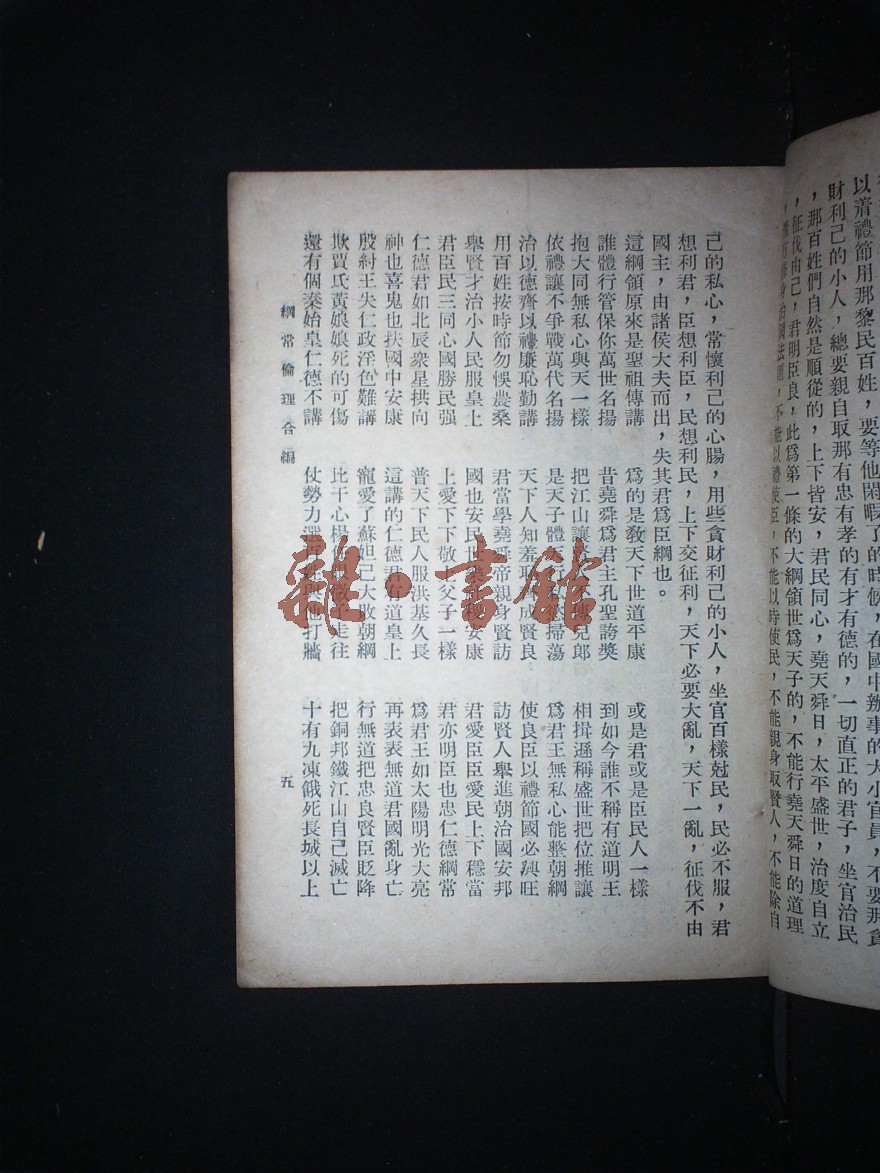 以着禮節用那黎民百姓，要等他閑暇了的時候，在國中辦事的大小官員，不要那貪
財利己的小人，總要親自取那有忠有孝的有才有德的，一切直正的君子，坐官治民
，那百姓們自然是順從的，上下皆安，君民同心，堯天舜日，太平盛世，治度自立
，征伐由己，君明臣良，此爲第一條的大綱領世爲天子的，不能行堯天舜日的道理
不能以禮使臣，不能以時使民，不能親身取賢人，不能除自
己的私心，常懷利己的心腸，用些貪財利己的小人，坐官百樣尅民，民必不服，君
想利君，臣想利臣，民想利民，上下交征利，天下必要大亂，天下一亂，征伐不由
國主，由諸侯大夫而出，失其君爲臣綱也。
這綱領原來是聖祖傳講　爲的是敎天下世道平康　或是君或是臣民人一樣
誰體行管保你萬世名揚　昔堯舜爲君主孔聖誇奬　到如今誰不稱有道明王
抱大同無私心與天一樣　把江山讓傳兒郎　相揖遜稱盛世把位推讓
依禮讓不爭戰萬代名揚　是天子體天慾掃蕩　爲君王無私心能整朝綱
治以德齊以禮廉恥勤講　天下人知羞恥成賢良　使良臣以禮節國必興旺
用百姓按時節勿悞農桑　君當學堯舜帝親身賢訪　訪賢人舉進朝治國安邦
舉賢才治小人民服皇上　國也安民世安康　君愛臣臣愛民上下穩當
君臣民三同心國勝民强　上愛下下敬父子一樣　君亦明臣也忠仁德綱常
仁德君如北辰衆星拱向　普天下民人服洪基久長　爲君王如太陽明光大亮
神也喜鬼也扶國中安康　這講的仁德君有道皇上　再表表無道君國亂身亡
殷紂王失仁政淫色難講　寵愛了蘇妲己大敗朝綱　行無道把忠良賢臣貶降
欺賈氏黃娘娘死的可傷　比干心走往　把銅邦鐵江山自己滅亡
還有個秦始皇仁德不講　仗勢力與他打牆　十有九凍餓死長城以上
綱常倫理合編
五
雜·書館